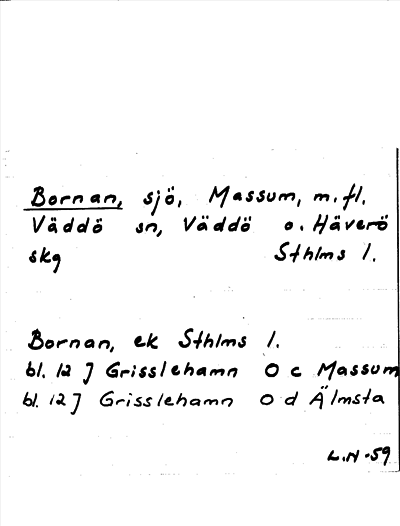 Bornan, sjö, Massum, m.fl.
Väddö sn, Väddö o. Häverö
skg Sthlms l.
Bornan, ek Sthlms l.
bl. 12 J Grisslehamn O c Massum
bl. 12 J Grisslehamn O d Älmsta
L.N-59